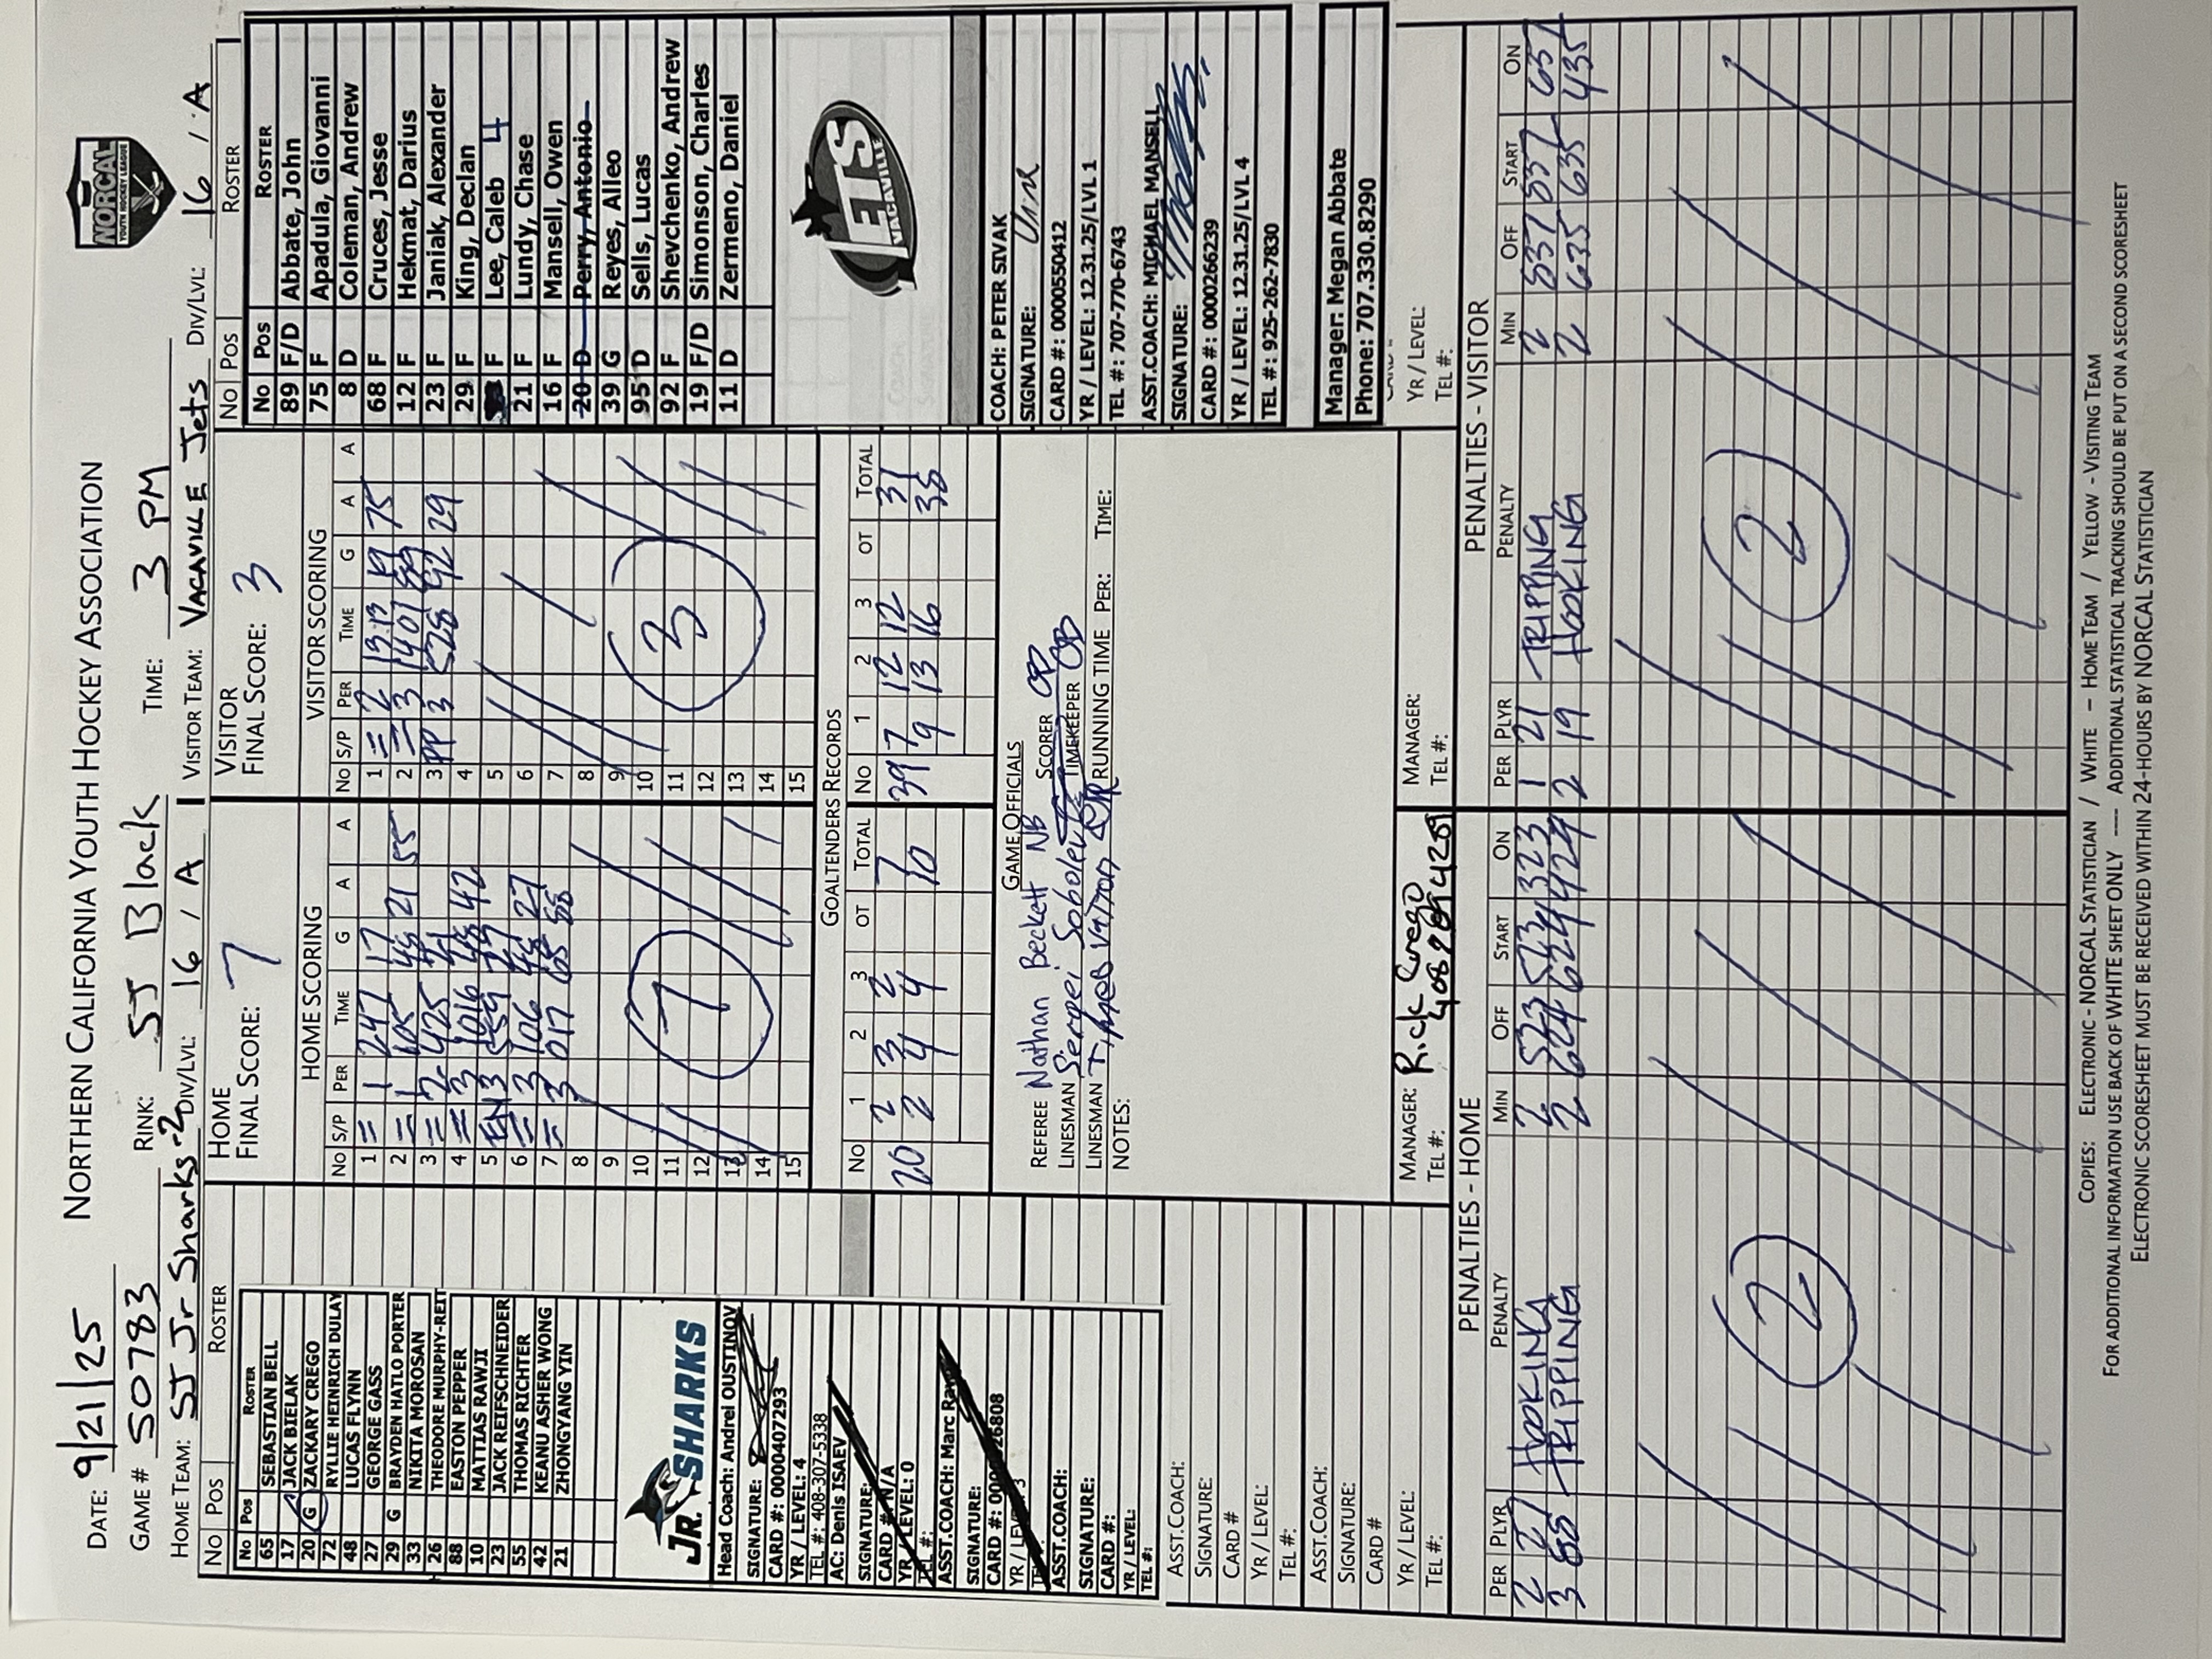 NORTHERN CALIFORNIA YOUTH HOCKEY ASSOCIATION
NORCAL
YOUTH HOCKEY LEAGUE
DATE: 9/21/25
GAME # 50783 RINK: SJ Black TIME: 3 PM
HOME TEAM: SJ Jr Sharks-2 DIV/LVL: 16 / A VISITOR TEAM: VACAVILLE Jets DIV/LVL: 16 / A
No Pos ROSTER
No Pos ROSTER
65 SEBASTIAN BELL
17 JACK BIELAK
20 G ZACKARY CREGO
72 RYLLIE HEINRICH DULAY
48 LUCAS FLYNN
27 GEORGE GASS
29 G BRAYDEN HATLO PORTER
33 NIKITA MOROSAN
26 THEODORE MURPHY-REIT
88 EASTON PEPPER
10 MATTIAS RAWJI
23 JACK REIFSCHNEIDER
55 THOMAS RICHTER
42 KEANU ASHER WONG
21 ZHONGYANG YIN
JR. SHARKS
Head Coach: Andrei OUSTINOV
SIGNATURE:
CARD #: 0000407293
YR / LEVEL: 4
TEL #: 408-307-5338
AC: Denis ISAEV
SIGNATURE:
CARD # N/A
YR / LEVEL: 0
TEL #:
ASST.COACH: Marc
SIGNATURE:
CARD #:
YR / LEVEL: 3
ASST.COACH:
SIGNATURE:
CARD #:
YR / LEVEL:
TEL #:
ASST.COACH:
SIGNATURE:
CARD #
YR / LEVEL:
TEL #:
ASST.COACH:
SIGNATURE:
CARD #
YR / LEVEL:
TEL #:
HOME
FINAL SCORE: 7
HOME SCORING
No S/P PER TIME G A A
1 = 1 247 17
2 = 1 105 48 21 55
3 = 2 425
4 = 3 1016 48 42
5 EN 3
6 = 3 106 48 27
7 = 3 017 65 88
8
9
10
11
12
13
14
15
7
VISITOR
FINAL SCORE: 3
VISITOR SCORING
No S/P PER TIME G A A
1 = 2 1313 19 75
2 = 3 1401 89
3 PP 3 528 92 29
4
5
6
7
8
9
10
11
12
13
14
15
3
GOALTENDERS RECORDS
No 1 2 3 OT TOTAL No 1 2 3 OT TOTAL
20 2 3 2 7 39 7 12 12 31
2 4 4 10 9 13 16 38
GAME OFFICIALS
REFEREE Nathan Beckett NB SCORER
LINESMAN Sergei Sobolev TIMEKEEPER
LINESMAN RUNNING TIME PER: TIME:
NOTES:
MANAGER: Rick Crego
TEL #:
MANAGER:
TEL #:
No Pos ROSTER
No Pos ROSTER
89 F/D Abbate, John
75 F Apadula, Giovanni
8 D Coleman, Andrew
68 F Cruces, Jesse
12 F Hekmat, Darius
23 F Janiak, Alexander
29 F King, Declan
F Lee, Caleb 4
21 F Lundy, Chase
16 F Mansell, Owen
20 D Perry, Antonio
39 G Reyes, Alleo
95 D Sells, Lucas
92 F Shevchenko, Andrew
19 F/D Simonson, Charles
11 D Zermeno, Daniel
JETS
VACAVILLE
COACH: PETER SIVAK
SIGNATURE:
CARD #: 0000550412
YR / LEVEL: 12.31.25/LVL 1
TEL #: 707-770-6743
ASST.COACH: MICHAEL MANSELL
SIGNATURE:
CARD #: 0000266239
YR / LEVEL: 12.31.25/LVL 4
TEL #: 925-262-7830
Manager: Megan Abbate
Phone: 707.330.8290
YR / LEVEL:
TEL #:
PENALTIES - HOME
PER PLYR PENALTY MIN OFF START ON
2 27 HOOKING 2 523 523 323
3 88 TRIPPING 2 624 624 424
2
PENALTIES - VISITOR
PER PLYR PENALTY MIN OFF START ON
1 21 TRIPPING 2 837 837 637
2 19 HOOKING 2 635 635 435
2
COPIES: ELECTRONIC - NORCAL STATISTICIAN / WHITE - HOME TEAM / YELLOW - VISITING TEAM
FOR ADDITIONAL INFORMATION USE BACK OF WHITE SHEET ONLY ---- ADDITIONAL STATISTICAL TRACKING SHOULD BE PUT ON A SECOND SCORESHEET
ELECTRONIC SCORESHEET MUST BE RECEIVED WITHIN 24-HOURS BY NORCAL STATISTICIAN